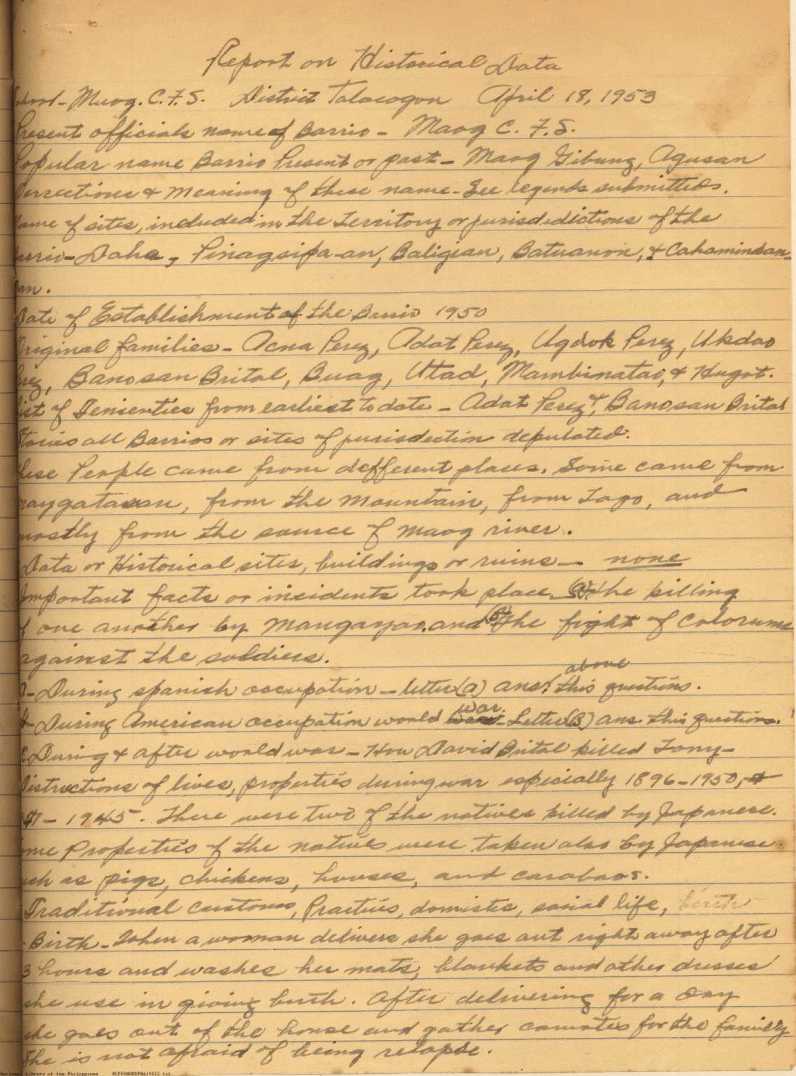 Report on Historical Data
School - Maog. C.F.S. District Talacogon April 18, 1953
Present officials name of Barrio - Maog C. F.S.
Popular name Barrio Present or past - Maog Gibung, Agusan
Derrections & Meaning of these name - See legends submitteds.
Name of sites, included in the Territory or jurisdidictions of the
Barrio - Daha, Pinagsipa-an, Baligian, Batuanon, & Cahamindan-
an.
Date of Establishment of the Barrio 1950
Original families - Acna Perez, Adat Perez, Ugdok Perez, Ukdao
Perez, Banosan Brital, Buag, Utad, Mambinatao, & Hugot.
List of Tenienties from earliest to date - Adat Perez &, Banosan Brital
Stories all Barrios or sites of jurisdiction depulated.
These People came from defferent places. Some came from
from the mountain, from Tago, and
mostly from the source of maog river.
Data or Historical sites, buildings or ruins - none
Important facts or incidents took place. (a) the killing
of one another by Mangayao, and (B) the fight of Colorums
against the soldiers.
a - During spanish occupation - letter (a) ans. above this questions.
b - During American occupation would war - Letter (B) ans. this question.
c During & after world war - How David Brital killed Tony -
Distructions of lives, properties during war especially 1896 - 1950, &
- 1945. There were two of the natives killed by Japanese.
Some Properties of the natives were taken also by Japanese.
such as pigs, chickens, houses, and carabaos.
Traditional customs, Practies, domistic, social life, birth
- Birth - When a woman delivers she goes out right away after
3 hours and washes her mats, blankets and other dresses
she use in giving birth. After delivering for a day
she goes out of the house and gather camotes for the family
She is not afraid of being relapse.